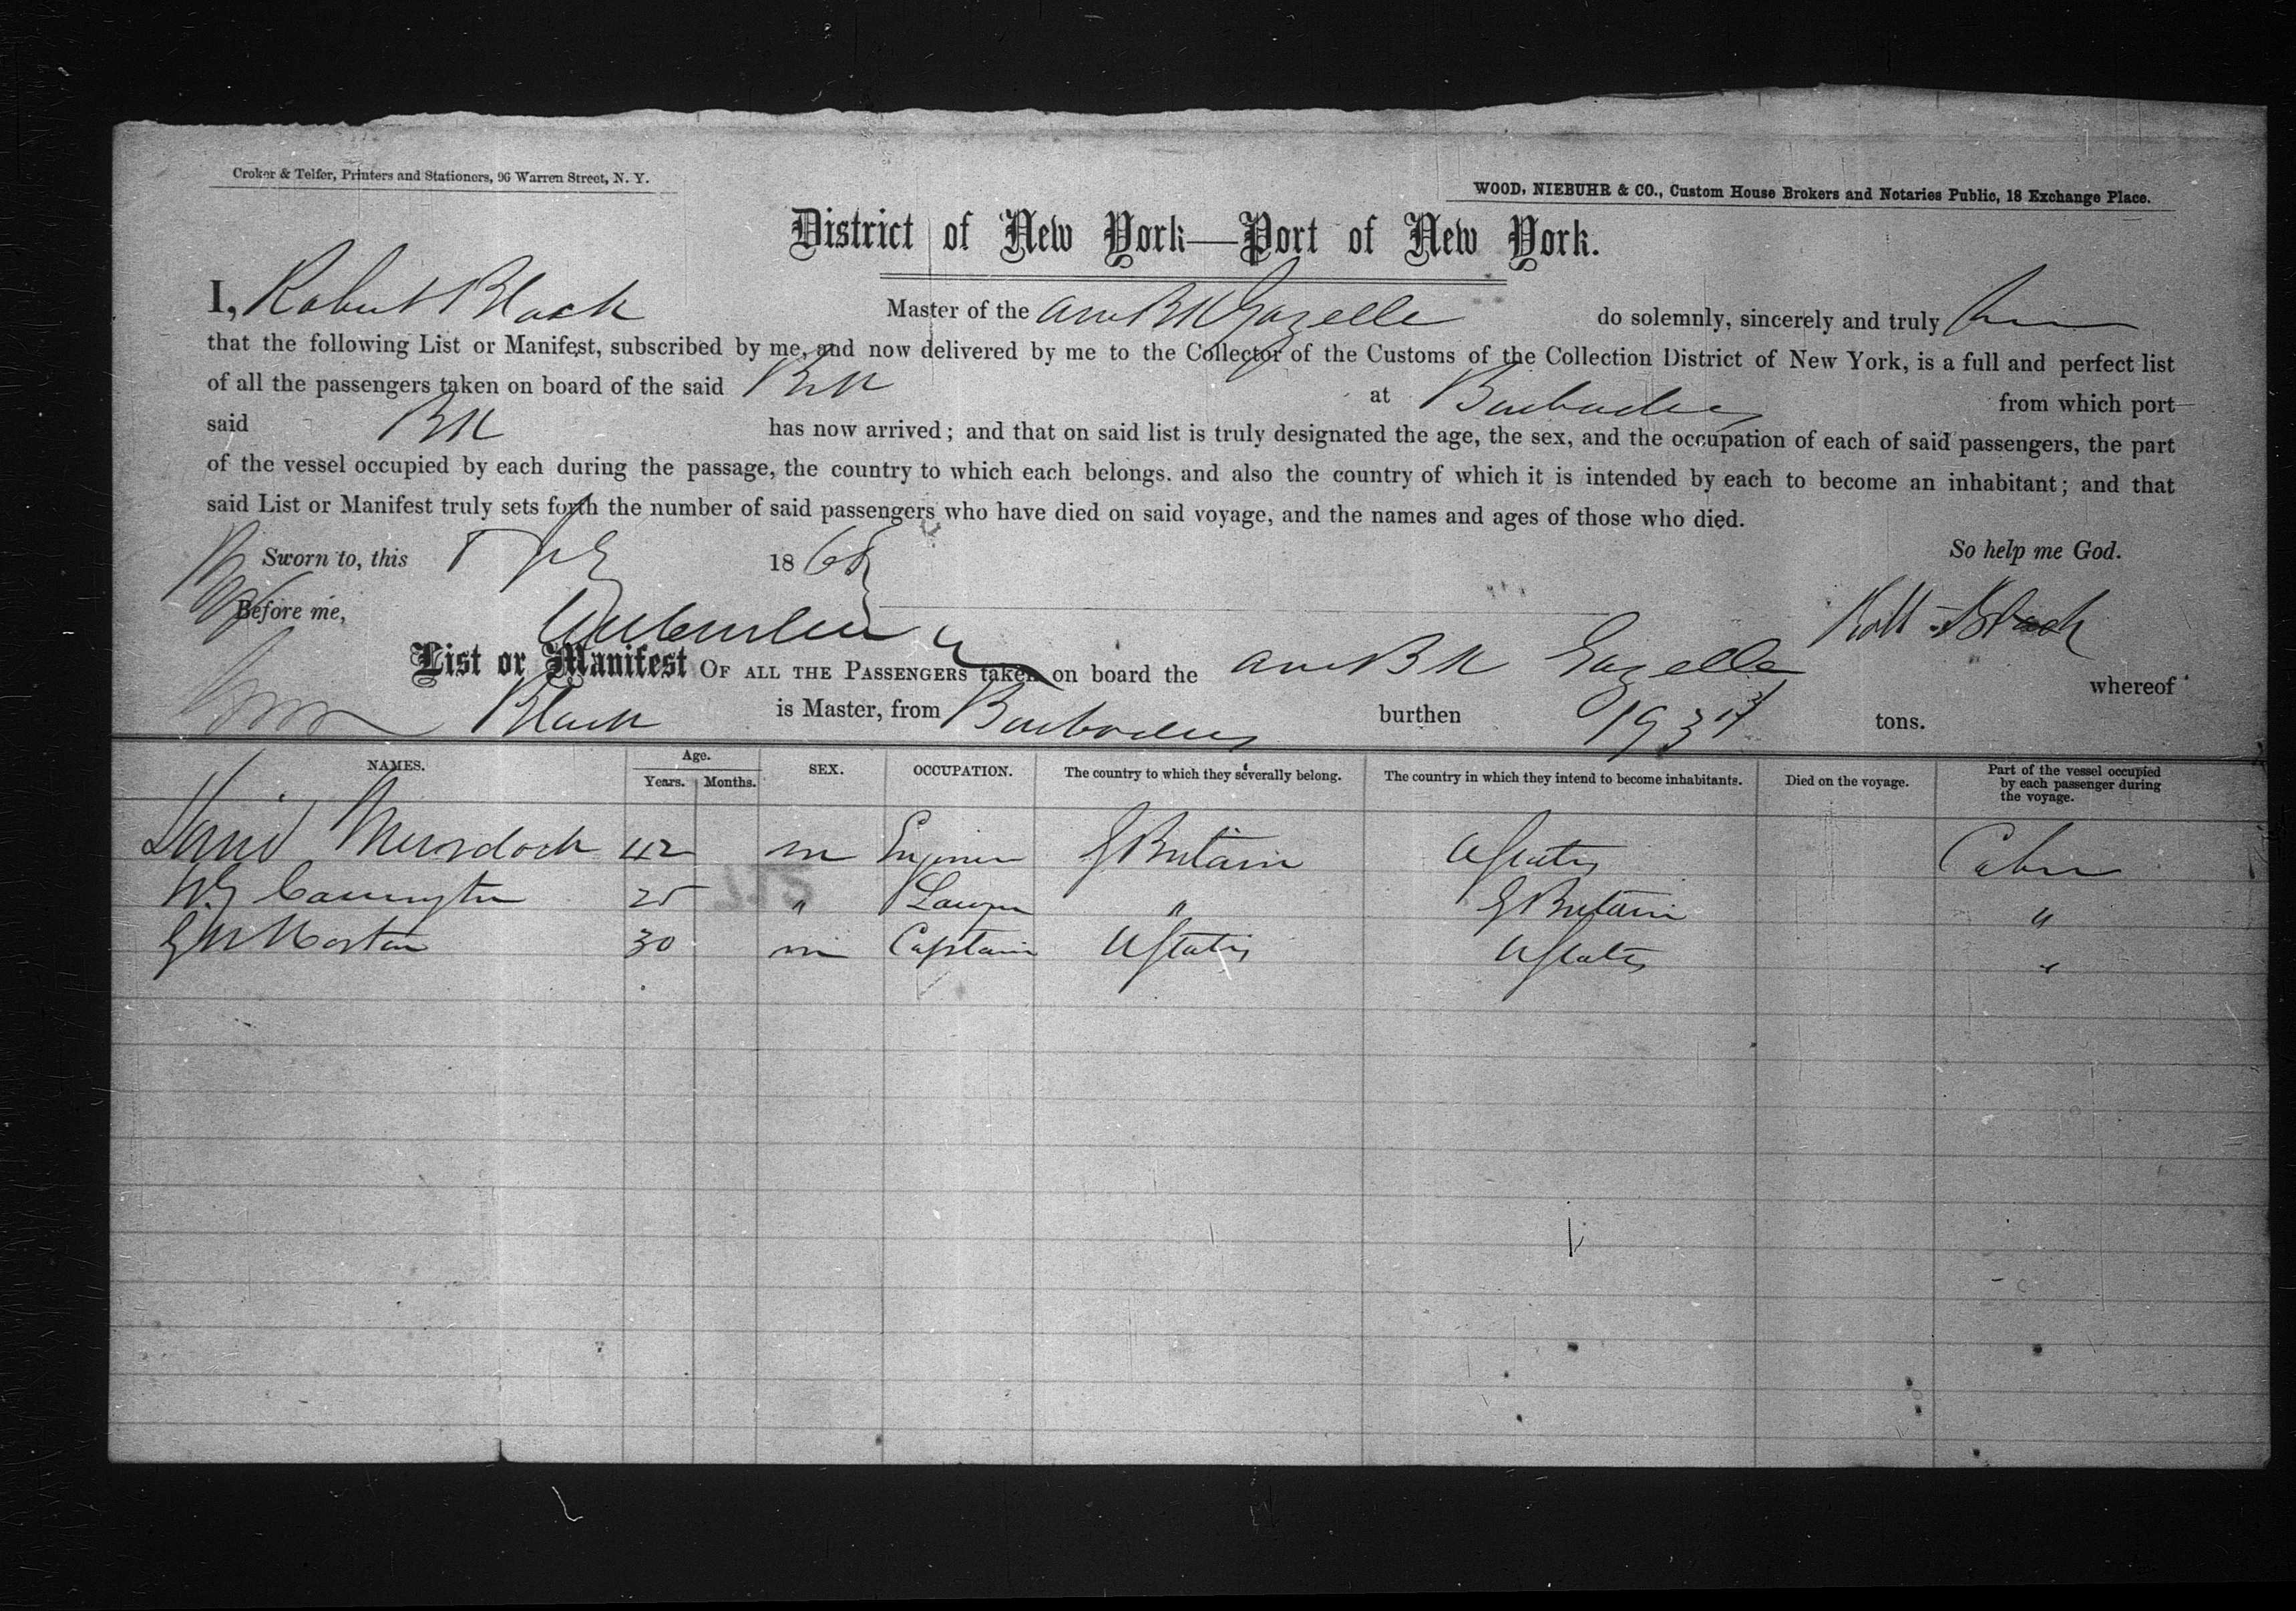 Croker & Telfer, Printers and Stationers, 96 Warren Street, N. Y.
WOOD, NIEBUHR & CO., Custom House Brokers and Notaries Public, 18 Exchange Place.
District of New York—Port of New York.
I, Robert Black Master of the Am Bk Gazelle do solemnly, sincerely and truly
that the following List or Manifest, subscribed by me, and now delivered by me to the Collector of the Customs of the Collection District of New York, is a full and perfect list
of all the passengers taken on board of the said Bk at Barbadoes from which port
said Bk has now arrived; and that on said list is truly designated the age, the sex, and the occupation of each of said passengers, the part
of the vessel occupied by each during the passage, the country to which each belongs. and also the country of which it is intended by each to become an inhabitant; and that
said List or Manifest truly sets forth the number of said passengers who have died on said voyage, and the names and ages of those who died.
Sworn to, this 1868 So help me God.
Before me, Robt Black
List or Manifest OF ALL THE PASSENGERS taken on board the Am Bk Gazelle whereof
Black is Master, from Barbadoes burthen 193 tons.
NAMES. Age. Years. Months. SEX. OCCUPATION. The country to which they severally belong. The country in which they intend to become inhabitants. Died on the voyage. Part of the vessel occupied by each passenger during the voyage.
David Murdoch 42 m Engineer G Britain U States Cabin
Carrington 25 " Lawyer " G Britain "
G W Morton 30 m Captain U States U States "